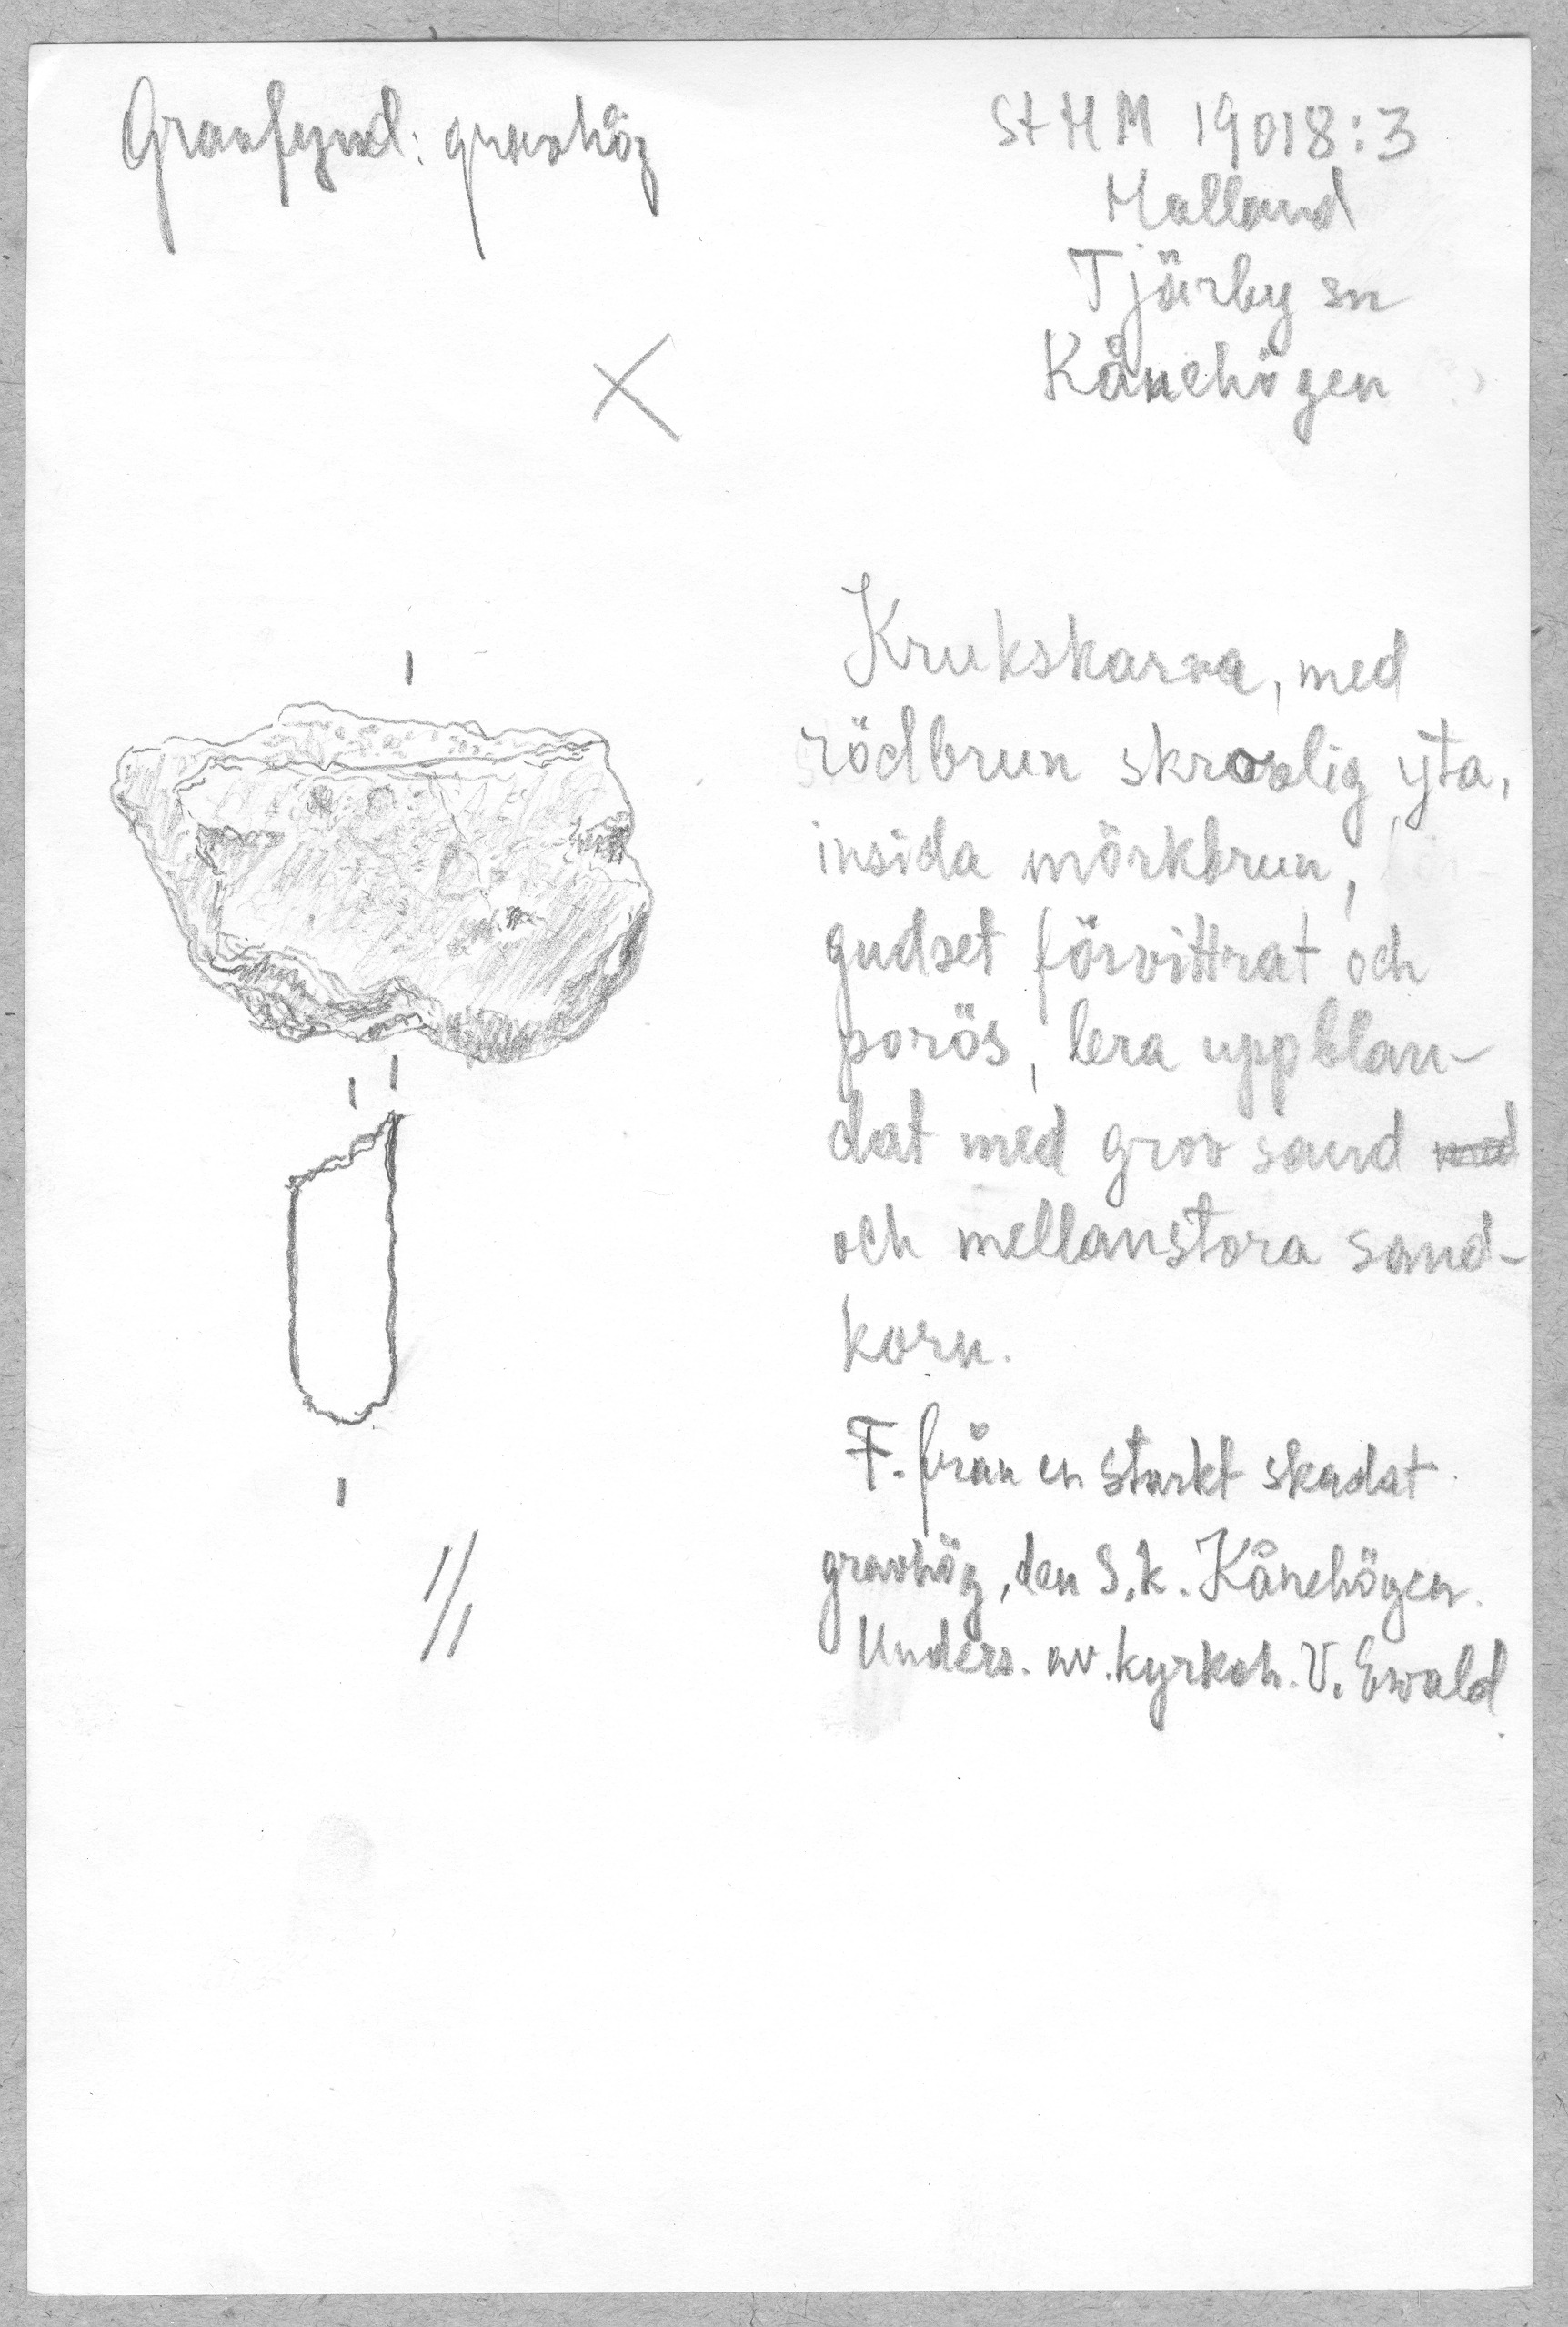 Gravfynd: gravhög
StHM 19018:3
Halland
Tjärby sn
Kånehögen
Krukskärva, med
rödbrun skrovlig yta,
insida mörkbrun,
godset förvittrat och
porös, lera uppblan-
dat med grov sand
och mellanstora sand-
korn.
F. från en starkt skadat
gravhög, den s.k. Kånehögen.
Unders. av kyrkoh. V. Ewald
1/1